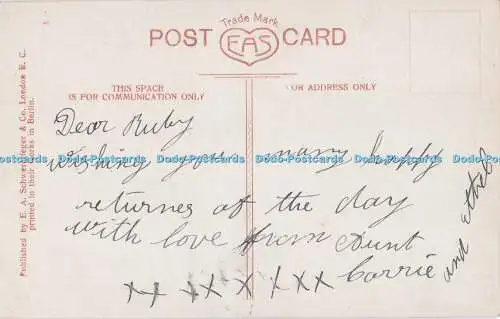 Trade Mark
POST EAS CARD
THIS SPACE
IS FOR COMMUNICATION ONLY
OR ADDRESS ONLY
Published by E. A. Schwerdtfeger & Co., London E. C.
printed in their works in Berlin.
Dear Ruby
wishing you many happy
returnes of the day
with love from Aunt
Carrie
and Ethel
xx xx x xxx
Dodo-Postcards Dodo-Postcards Dodo-Postcards Dodo-Postcards Dodo-Postcards Dodo-Postcards